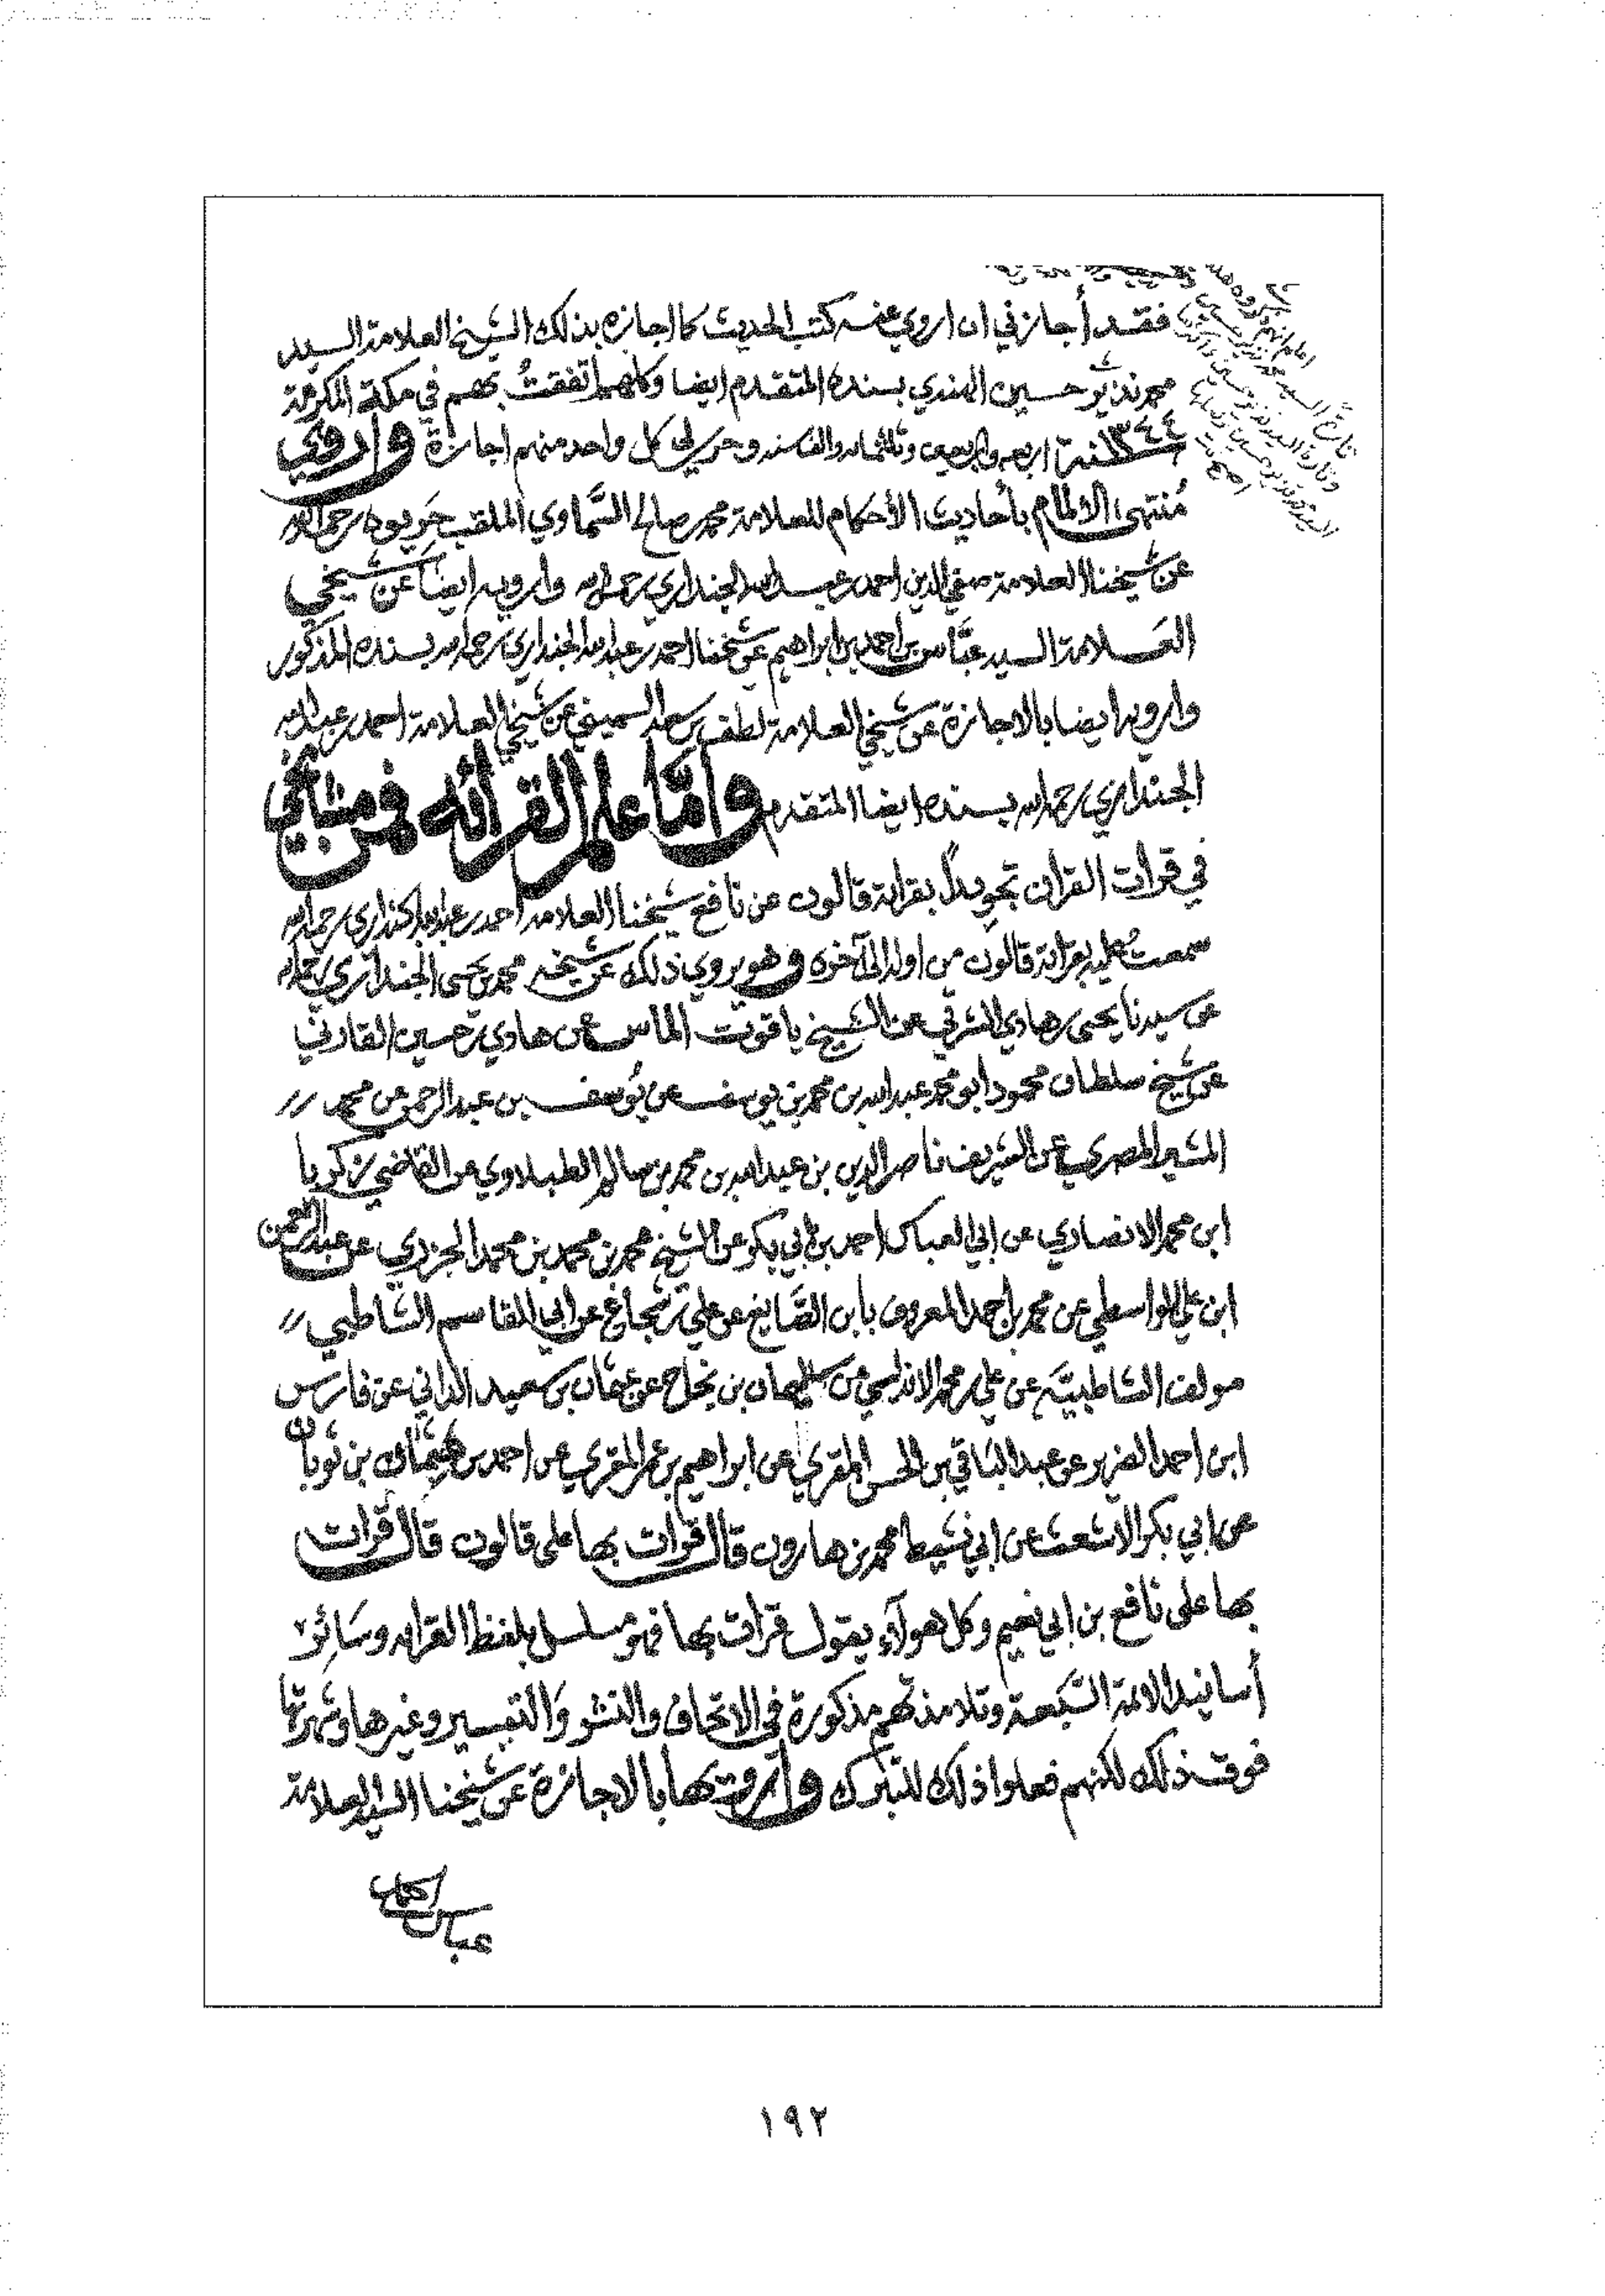 فقد أجازني ان اروي عنه كتب الحديث كما اجازه بذلك الشيخ العلامة السيد
محمد نذير حسين الهندي بسنده المتقدم ايضا وكلهم اتفقتُ بهم في مكة المكرمة
سنة ١٣٤٤ اربع واربعين وثلثمائه والف سنه وحرر لي كل واحد منهم اجازة وأروي
مُنتهى الالمام بأحاديث الأحكام للعلامة محمد صالح السَّماوي الملقب حَريوه رحمه الله
عن شيخنا العلامة صفي الدين احمد بن عبد الله الجنداري رحمه الله وارويه ايضاً عن شيخي
العَلامة السيد عبَّاس بن احمد بن ابراهيم عن شيخنا احمد بن عبد الله الجنداري رحمه الله بسنده المذكور
وارويه ايضا بالاجازة عن شيخي العلامة لطف بن سعد السميني عن شيخي العلامة احمد بن عبد الله
الجنداري رحمه الله بسنده ايضا المتقدم وامَّا علم القرائه فمن مشايخي
في قرات القران تجويداً بقراءة قالون عن نافع شيخنا العلامه احمد بن عبد الله الجنداري رحمه الله
سمعت عليه بقراءة قالون من اوله الى آخره وهو يروي ذلك عن شيخه محمد بن يحيى الجنداري رحمه الله
عن سيدنا يحيى بن هادي الشرفي عن الشيخ ياقوت الماس عن هادي بن حسين القارني
عن شيخ سلطان محمود ابو محمد عبد الله بن محمد بن يوسف عن يُوسف بن عبد الرحمن عن محمد //
المشير المصري عن الشريف ناصر الدين بن عبد الله بن محمد بن سالم الطبلاوي عن القاضي زكريا
ابن محمد الانصاري عن ابي العباس احمد بن ابي بكر عن الشيخ محمد بن محمد بن محمد الجزري عن عبد الرحمن
ابن علي الواسطي عن محمد بن احمد المعروف بابن الصَّايغ عن علي بن شجاع عن ابي القاسم الشاطبي //
مولف الشاطبيَّه عن علي بن محمد الاندلسي عن سليمان بن نجاح عن عثمان بن سعيد الداني عن فارس
ابن احمد الضرير عن عبد الباقي بن الحسن المقري عن ابراهيم بن عمر المقري عن احمد بن عثمان بن ثوبان
عن ابي بكر الاشعث عن ابي نشيط محمد بن هارون قال قرات بها على قالون قال قرات
بها على نافع بن ابي نعيم وكل هولآء يقول قرات بها فهو مسلسل بلفظ القراه وسَائر
أسانيد الائمة السَّبعة وتلامذتهم مذكورة في الاتحاف والنشر والتيسير وغيرها وشهرتها
فوق ذلك لكنهم فعلوا ذلك للتبرك وأرويها بالاجازة عن شيخنا السيد العلامة
عباس
١٩٢